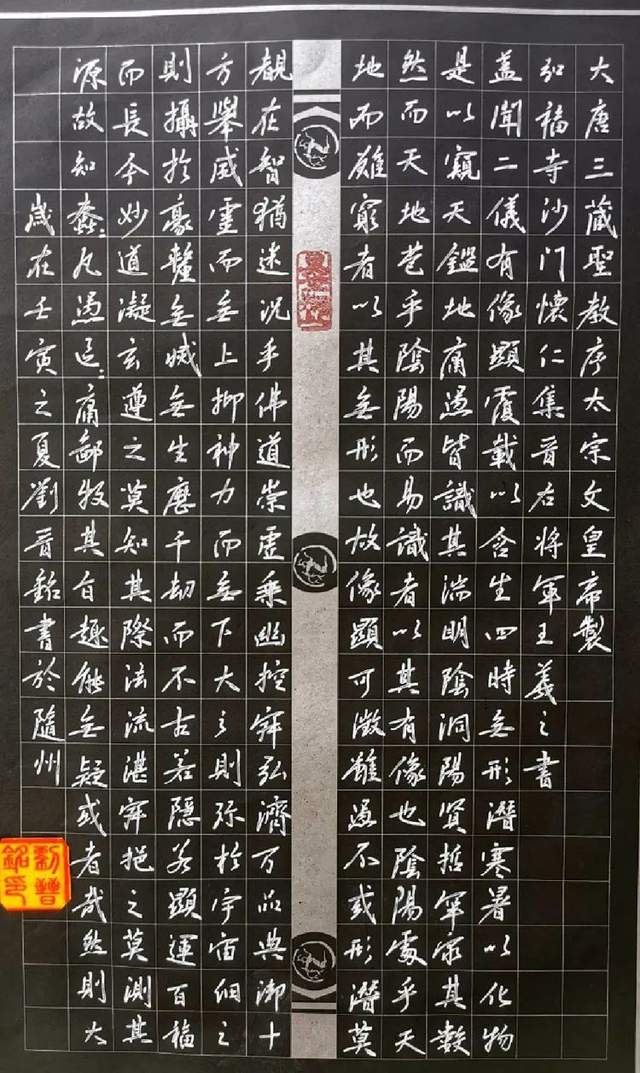 大唐三藏聖教序太宗文皇帝製
弘福寺沙门懷仁集晉右將軍王羲之書
蓋聞二儀有像顯覆載以含生四時無形潛寒暑以化物
是以窺天鑑地庸愚皆識其端明陰洞陽賢哲罕窮其數
然而天地苞乎陰陽而易識者以其有像也陰陽處乎天
地而難窮者以其無形也故像顯可徵雖愚不或形潛莫
覩在智猶迷況乎佛道崇虛乘幽控寂弘濟万品典御十
方舉威靈而無上抑神力而無下大之則弥於宇宙細之
則攝於豪氂無滅無生歷千劫而不古若隱若顯運百福
而長今妙道凝玄遵之莫知其際法流湛寂挹之莫測其
源故知蠢〻凡愚區〻庸鄙投其旨趣能無疑或者哉然則大
歲在壬寅之夏劉晉銘書於隨州
劉晉銘印